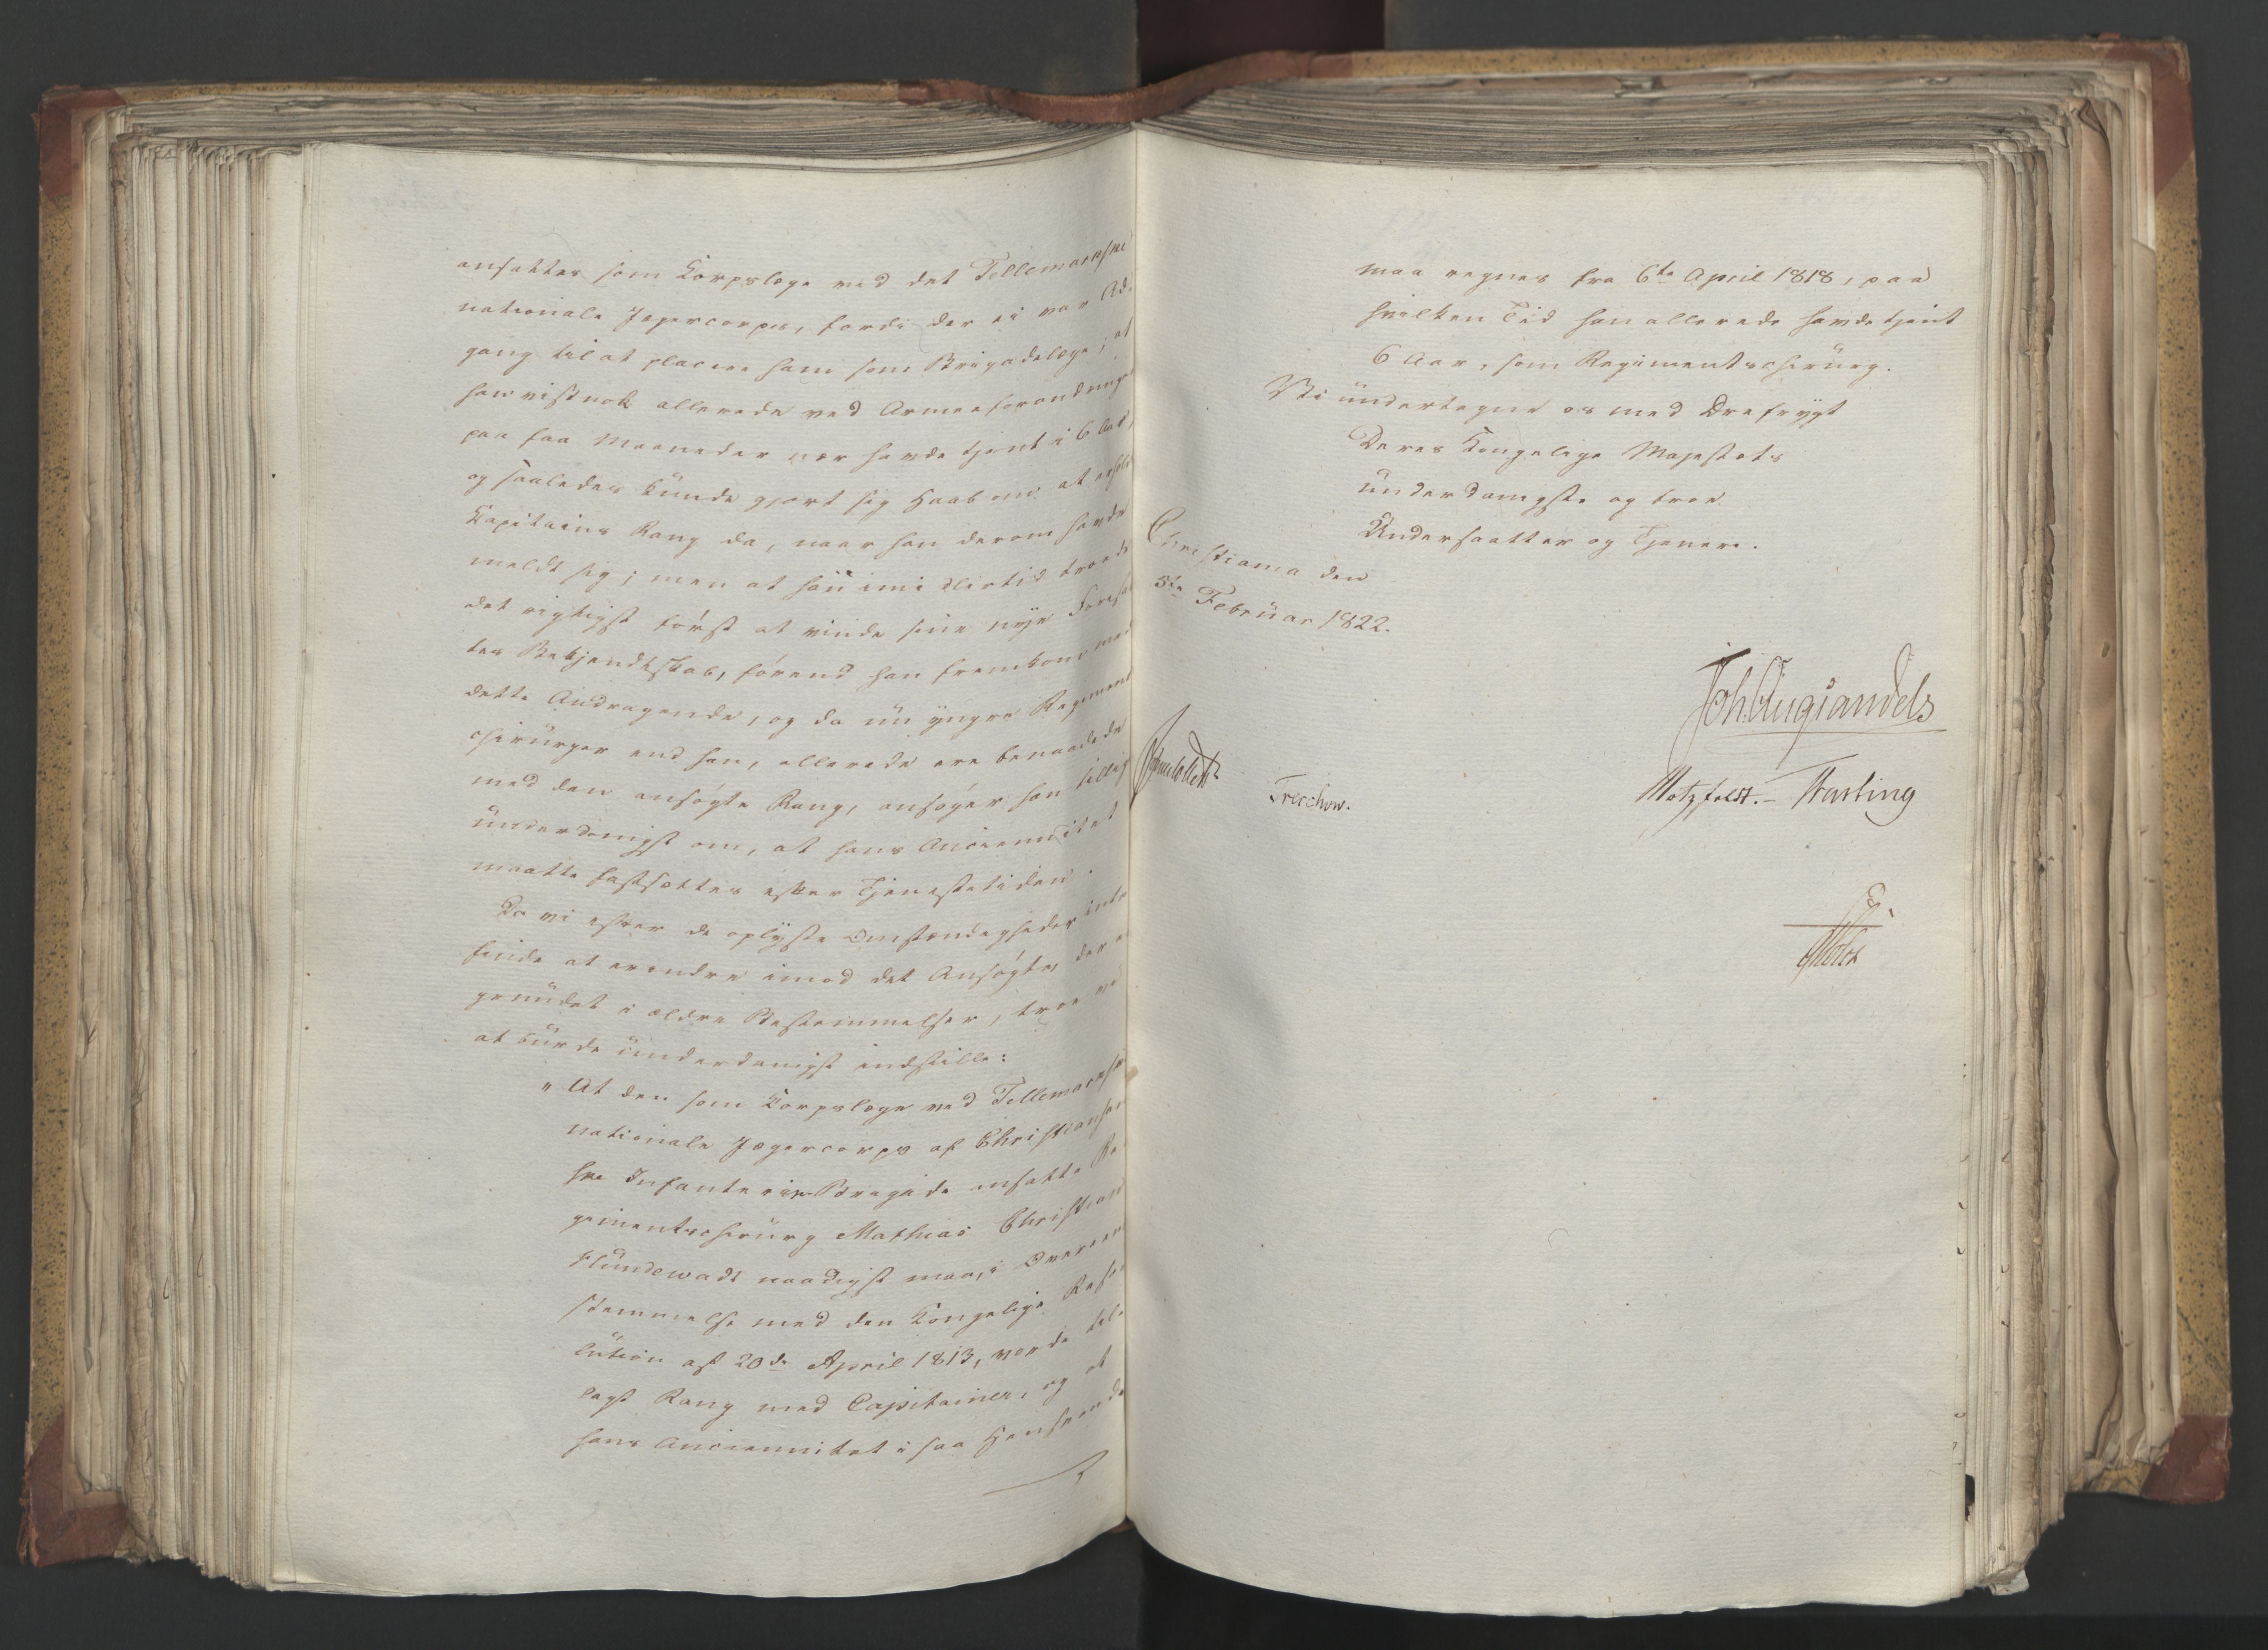 ansættes som Korpslæge ved det Tellemarkske
nationale Jægercorps, fordi der ei var Ad-
gang til at placere ham som Brigadelæge; at
han vistnok allerede ved Armeeforandringen
paa faa Maaneder nær havde tjent i 6 Aar,
og saaledes kunde gjort sig Haab om at erholde
Kapitains Rang da, naar han derom havde
meldt sig; men at han imidlertid troede
det rigtigst først at vinde sine nye Foresat-
tes Bekjendtskab, førend han fremkom med
dette Andragende, og da nu yngre Regiments
chirurger end han, allerede ere benaadede
med den ansøgte Rang, ansøger han tillige
underdanigst om, at hans Anciennitet
maatte fastsættes efter Tjenestetiden.
Da vi efter de oplyste Omstændigheder intet
finde at erindre imod det Ansøgte, der er
grundet i ældre Bestemmelser, troe vi
at burde underdanigst indstille:
" At den som Korpslæge ved Tellemarkske
nationale Jægercorps af Christiansand-
ske Infanterie-Brigade ansatte Re-
gimentschirurg Mathias Christian
Hundewadt naadigst maa, i Overeen-
stemmelse med den Kongelige Reso-
lution af 20de April 1813, vorde til-
lagt Rang med Capitainer, og at
hans Anciennitet i saa Henseende
maa regnes fra 6te April 1818, paa
hvilken Tid han allerede havde tjent
6 Aar, som Regimentschirurg.
Vi undertegne os med Ærefrygt
Deres Kongelige Majestæts
underdanigste og troe
Undersaatter og Tjenere.
Christiania den
5te Februar 1822.
Joh. Aug Sandels
Treschow.
Motzfeldt. - Fasting
Holst